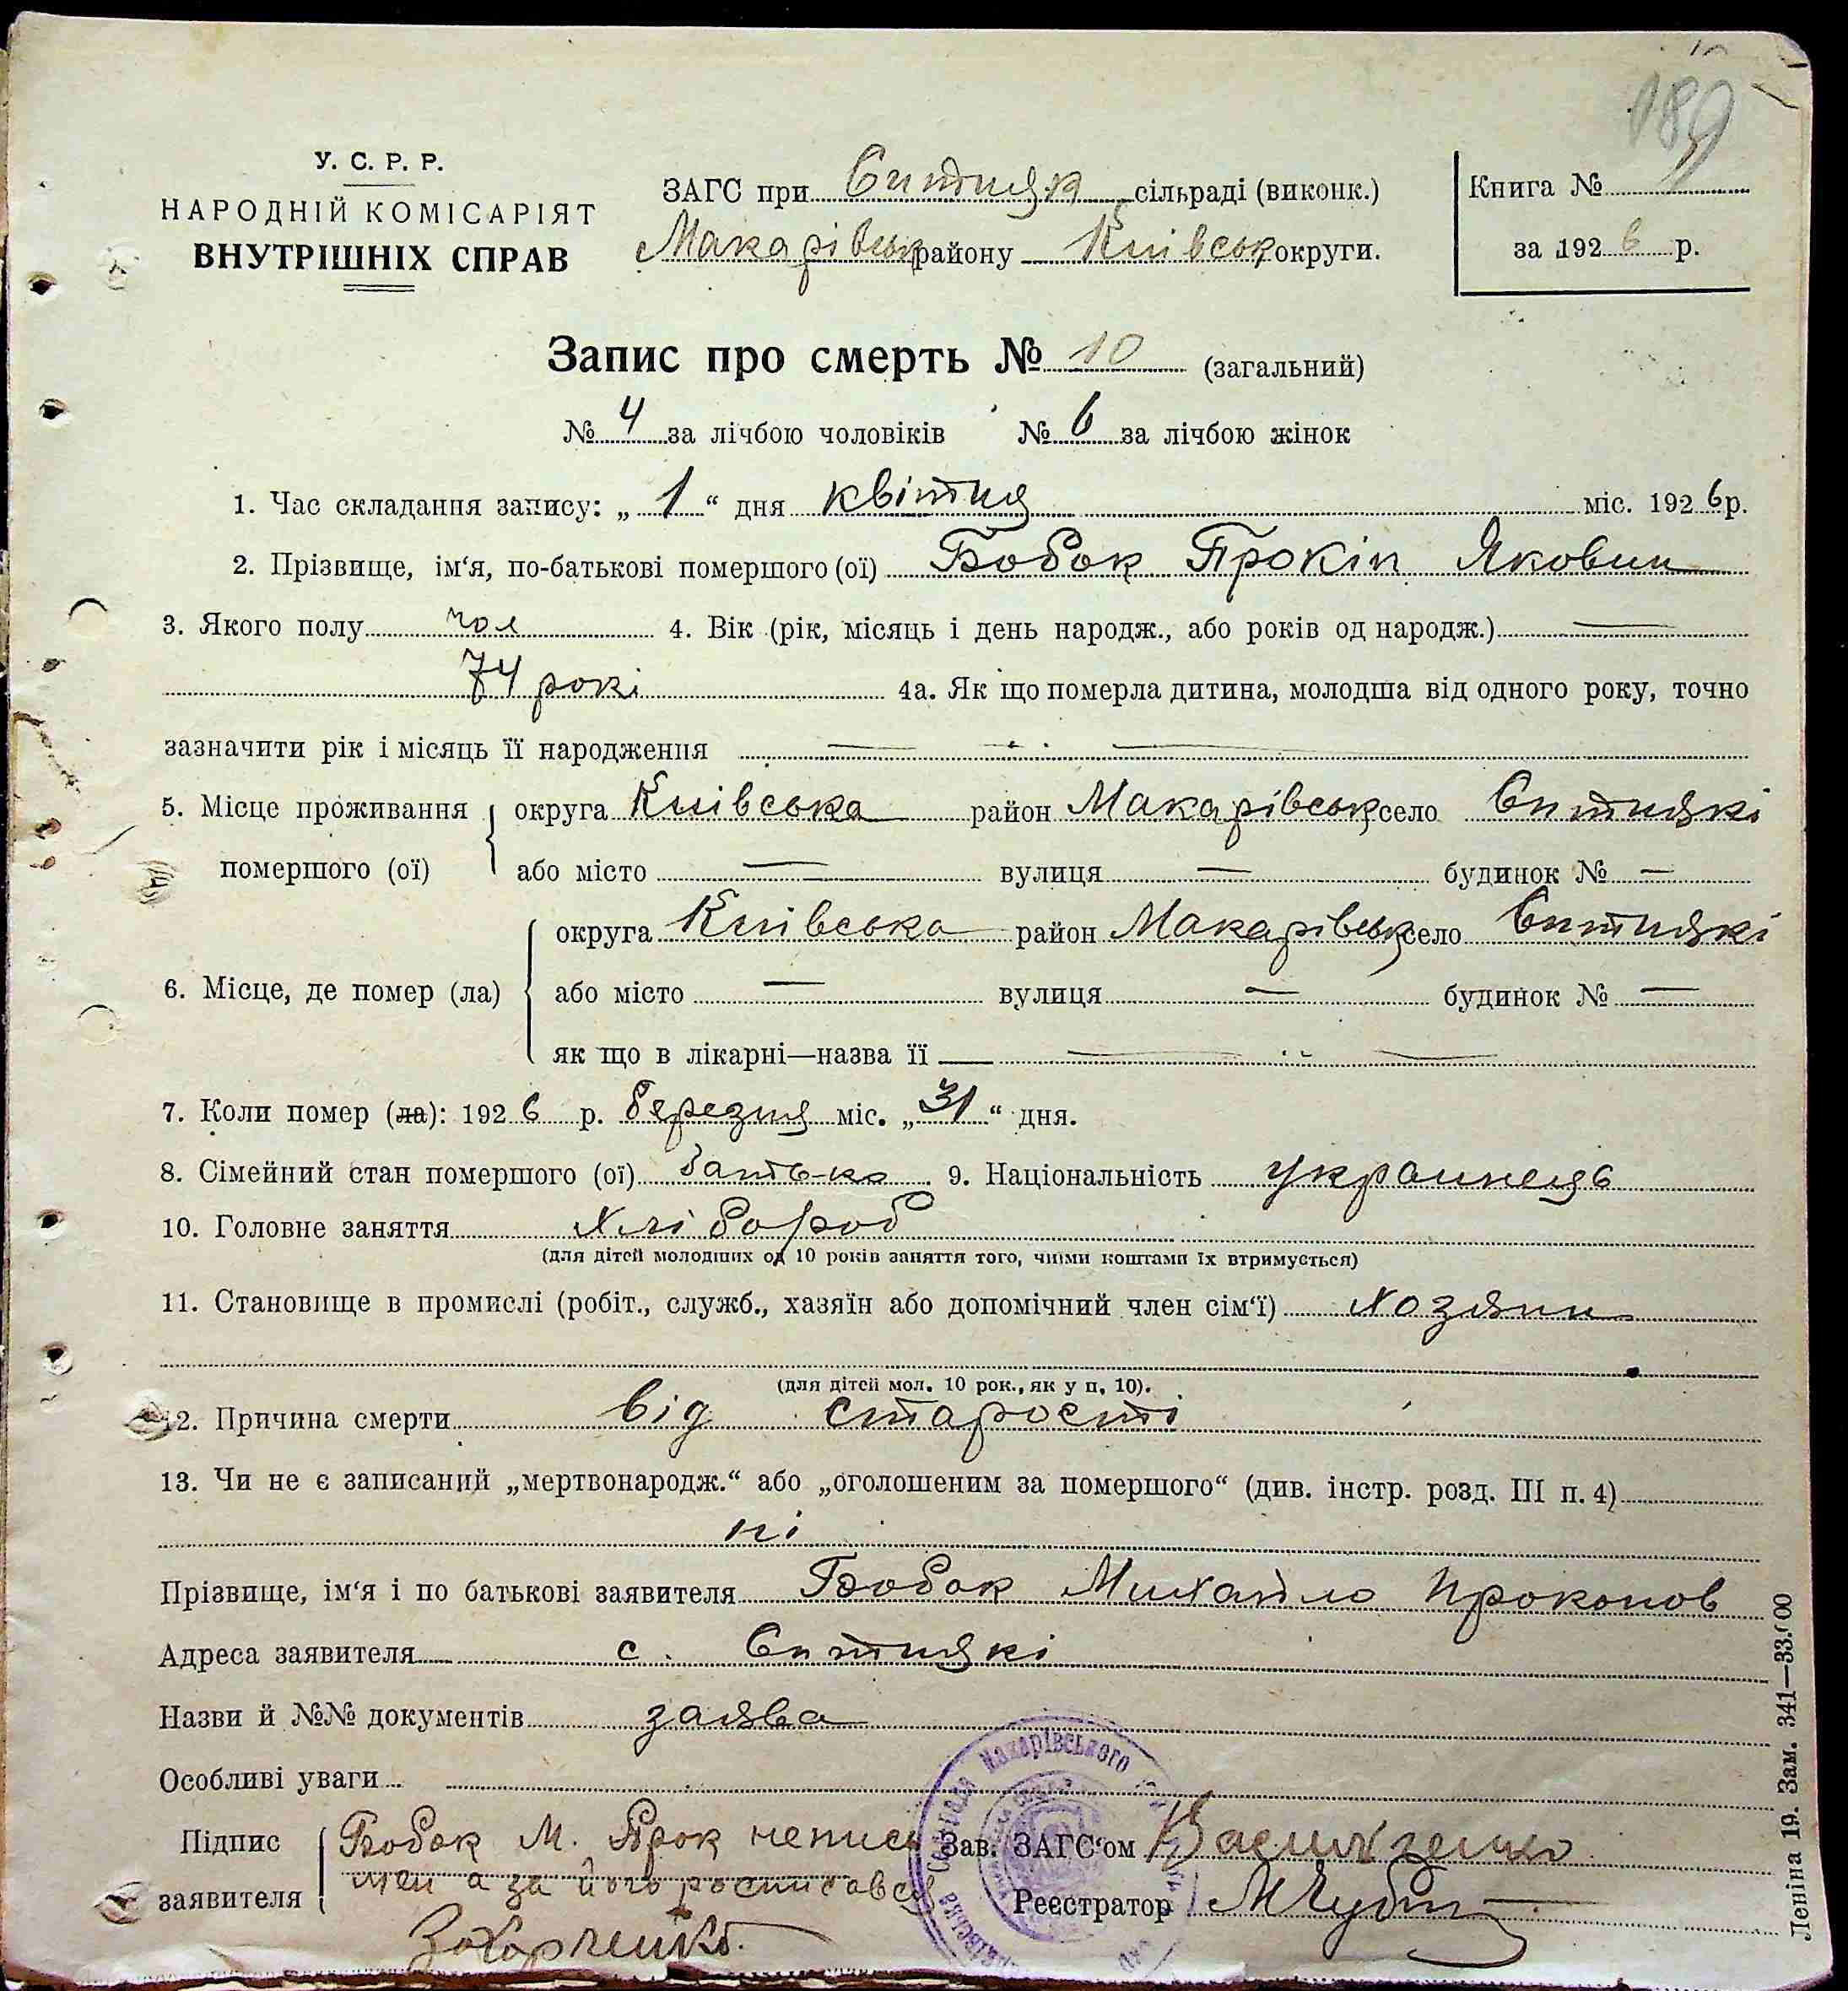 189
У. С. Р. Р.
НАРОДНІЙ КОМІСАРІЯТ
ВНУТРІШНІХ СПРАВ
ЗАГС при Ситняк сільраді (виконк.)
Макарівськ району Київськ округи.
Книга №
за 1926 р.
Запис про смерть № 10 (загальний)
№ 4 за лічбою чоловіків № 6 за лічбою жінок
1. Час складання запису: „ 1 “ дня квітня міс. 1926 р.
2. Прізвище, ім‘я, по-батькові помершого (ої) Бобок Прокіп Якович
3. Якого полу чол 4. Вік (рік, місяць і день народж., або років од народж.) —
74 рокі 4а. Як що померла дитина, молодша від одного року, точно
зазначити рік і місяць її народження — —
5. Місце проживання округа Київська район Макарівськ село Ситнякі
помершого (ої) або місто — вулиця — будинок № —
округа Київська район Макарівськ село Ситнякі
6. Місце, де помер (ла) або місто — вулиця — будинок № —
як що в лікарні—назва її — —
7. Коли помер (ла): 1926 р. березня міс. „ 31 “ дня.
8. Сімейний стан помершого (ої) батько 9. Національність украинець
10. Головне заняття хлібороб
(для дітей молодших од 10 років заняття того, чиїми коштами їх втримується)
11. Становище в промислі (робіт., служб., хазяїн або допомічний член сім‘ї) хозяин
(для дітей мол. 10 рок., як у п. 10).
12. Причина смерти від старості
13. Чи не є записаний „мертвонародж.“ або „оголошеним за помершого“ (див. інстр. розд. III п. 4)
ні
Прізвище, ім‘я і по батькові заявителя Бобок Михайло Прокопов
Адреса заявителя с. Ситнякі
Назви й №№ документів заява
Особливі уваги
Підпис Бобок М. Прок неписьмен Зав. ЗАГС‘ом Василченко
заявителя а за його росписався Реєстратор МЧуб
Захарченко.
Макарівського
Ленїна 19. Зам. 341—33.000